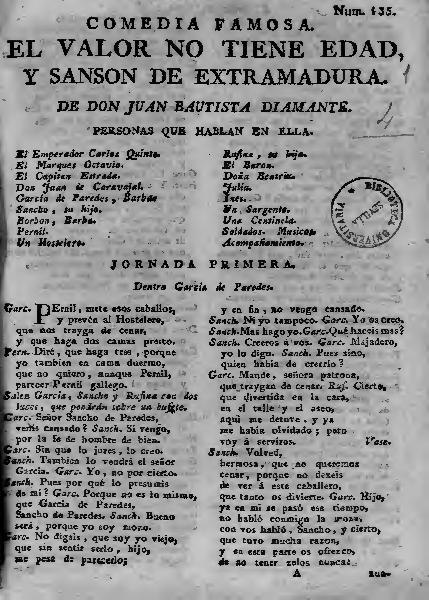 Num. 135.
COMEDIA FAMOSA.
EL VALOR NO TIENE EDAD,
Y SANSON DE EXTREMADURA.
DE DON JUAN BAUTISTA DIAMANTE.
PERSONAS QUE HABLAN EN ELLA.
El Emperador Carlos Quinto.
El Marques Octavio.
El Capitan Estrada.
Don Juan de Caravajal.
Garcia de Paredes, Barba.
Sancho, su hijo.
Borbon, Barba.
Pernil.
Un Hostelero.
Rufina, su hija.
El Baron.
Doña Beatriz.
Julia.
Ines.
Un Sargento.
Una Centinela.
Soldados. Musicos.
Acompañamiento.
BIBLIOTECA UNIVERSITARIA
SEVILLA
4
JORNADA PRIMERA.
Dentro Garcia de Paredes.
Garc. PErnil, mete esos caballos,
y prevén al Hostelero,
que nos trayga de cenar,
y que haga dos camas presto.
Pern. Diré, que haga tres, porque
yo tambien en cama duermo,
que no quiero, aunque Pernil,
parecer Pernil gallego.
Salen Garcia, Sancho y Rufina con dos
luces, que pondrán sobre un bufete.
Garc. Señor Sancho de Paredes,
venis cansado? Sanch. Si vengo,
por la fe de hombre de bien.
Garc. Sin que lo jures, lo creo.
Sanch. Tambien lo vendrá el señor
Garcia. Garc. Yo, no por cierto.
Sanch. Pues por qué lo presumis
de mi? Garc. Porque no es lo mismo,
que Garcia de Paredes,
Sancho de Paredes. Sanch. Bueno
será, porque yo soy mozo.
Garc. No digais, que soy yo viejo,
que sin sentir serlo, hijo,
me pesa de parecerlo;
y en fin, no vengo cansado.
Sanch. Ni yo tampoco. Garc. Yo os creo.
Sanch. Mas hago yo. Garc. Qué haceis mas?
Sanch. Creeros á vos. Garc. Majadero,
yo lo digo. Sanch. Pues sino,
quien habia de creerlo?
Garc. Mande, señora patrona,
que traygan de cenar. Ruf. Cierto,
que divertida en la cara,
en el talle y el aseo,
aquí me detuve, y ya
me habia olvidado; pero
voy á serviros. Vase.
Sanch. Volved,
hermosa, que no queremos
cenar, porque no dexeis
de ver á este caballero,
que tanto os divierte. Garc. Hijo,
ya en mi se pasó ese tiempo,
no habló conmigo la moza,
con vos habló, Sancho, y cierto,
que tuvo mucha razon,
y en esta parte os ofrezco,
de no tener zelos nunca:
A